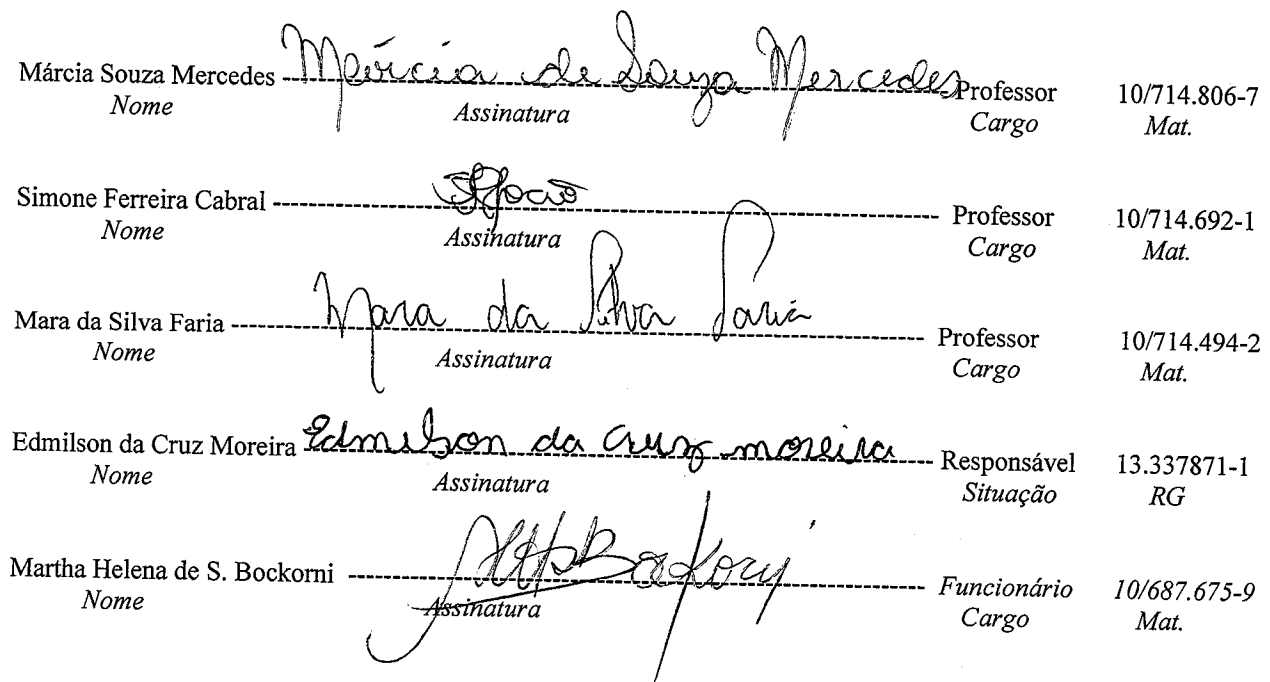 Márcia Souza Mercedes Márcia de Souza Mercedes Professor 10/714.806-7
Nome Assinatura Cargo Mat.
Simone Ferreira Cabral Professor 10/714.692-1
Nome Assinatura Cargo Mat.
Mara da Silva Faria Mara da Silva Faria Professor 10/714.494-2
Nome Assinatura Cargo Mat.
Edmilson da Cruz Moreira Edmilson da Cruz moreira Responsável 13.337871-1
Nome Assinatura Situação RG
Martha Helena de S. Bockorni Funcionário 10/687.675-9
Nome Assinatura Cargo Mat.